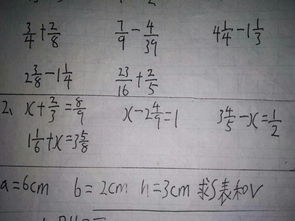 3/4+2/8 7/9-4/39 4 1/4-1 1/3
2 3/8-1 1/4 23/16+2/5
2、x+2/3=8/9 x-2 4/9=1 3 4/5-x=1/2
1 1/6+x=3 5/8
a=6cm b=2cm h=3cm 求S表和V